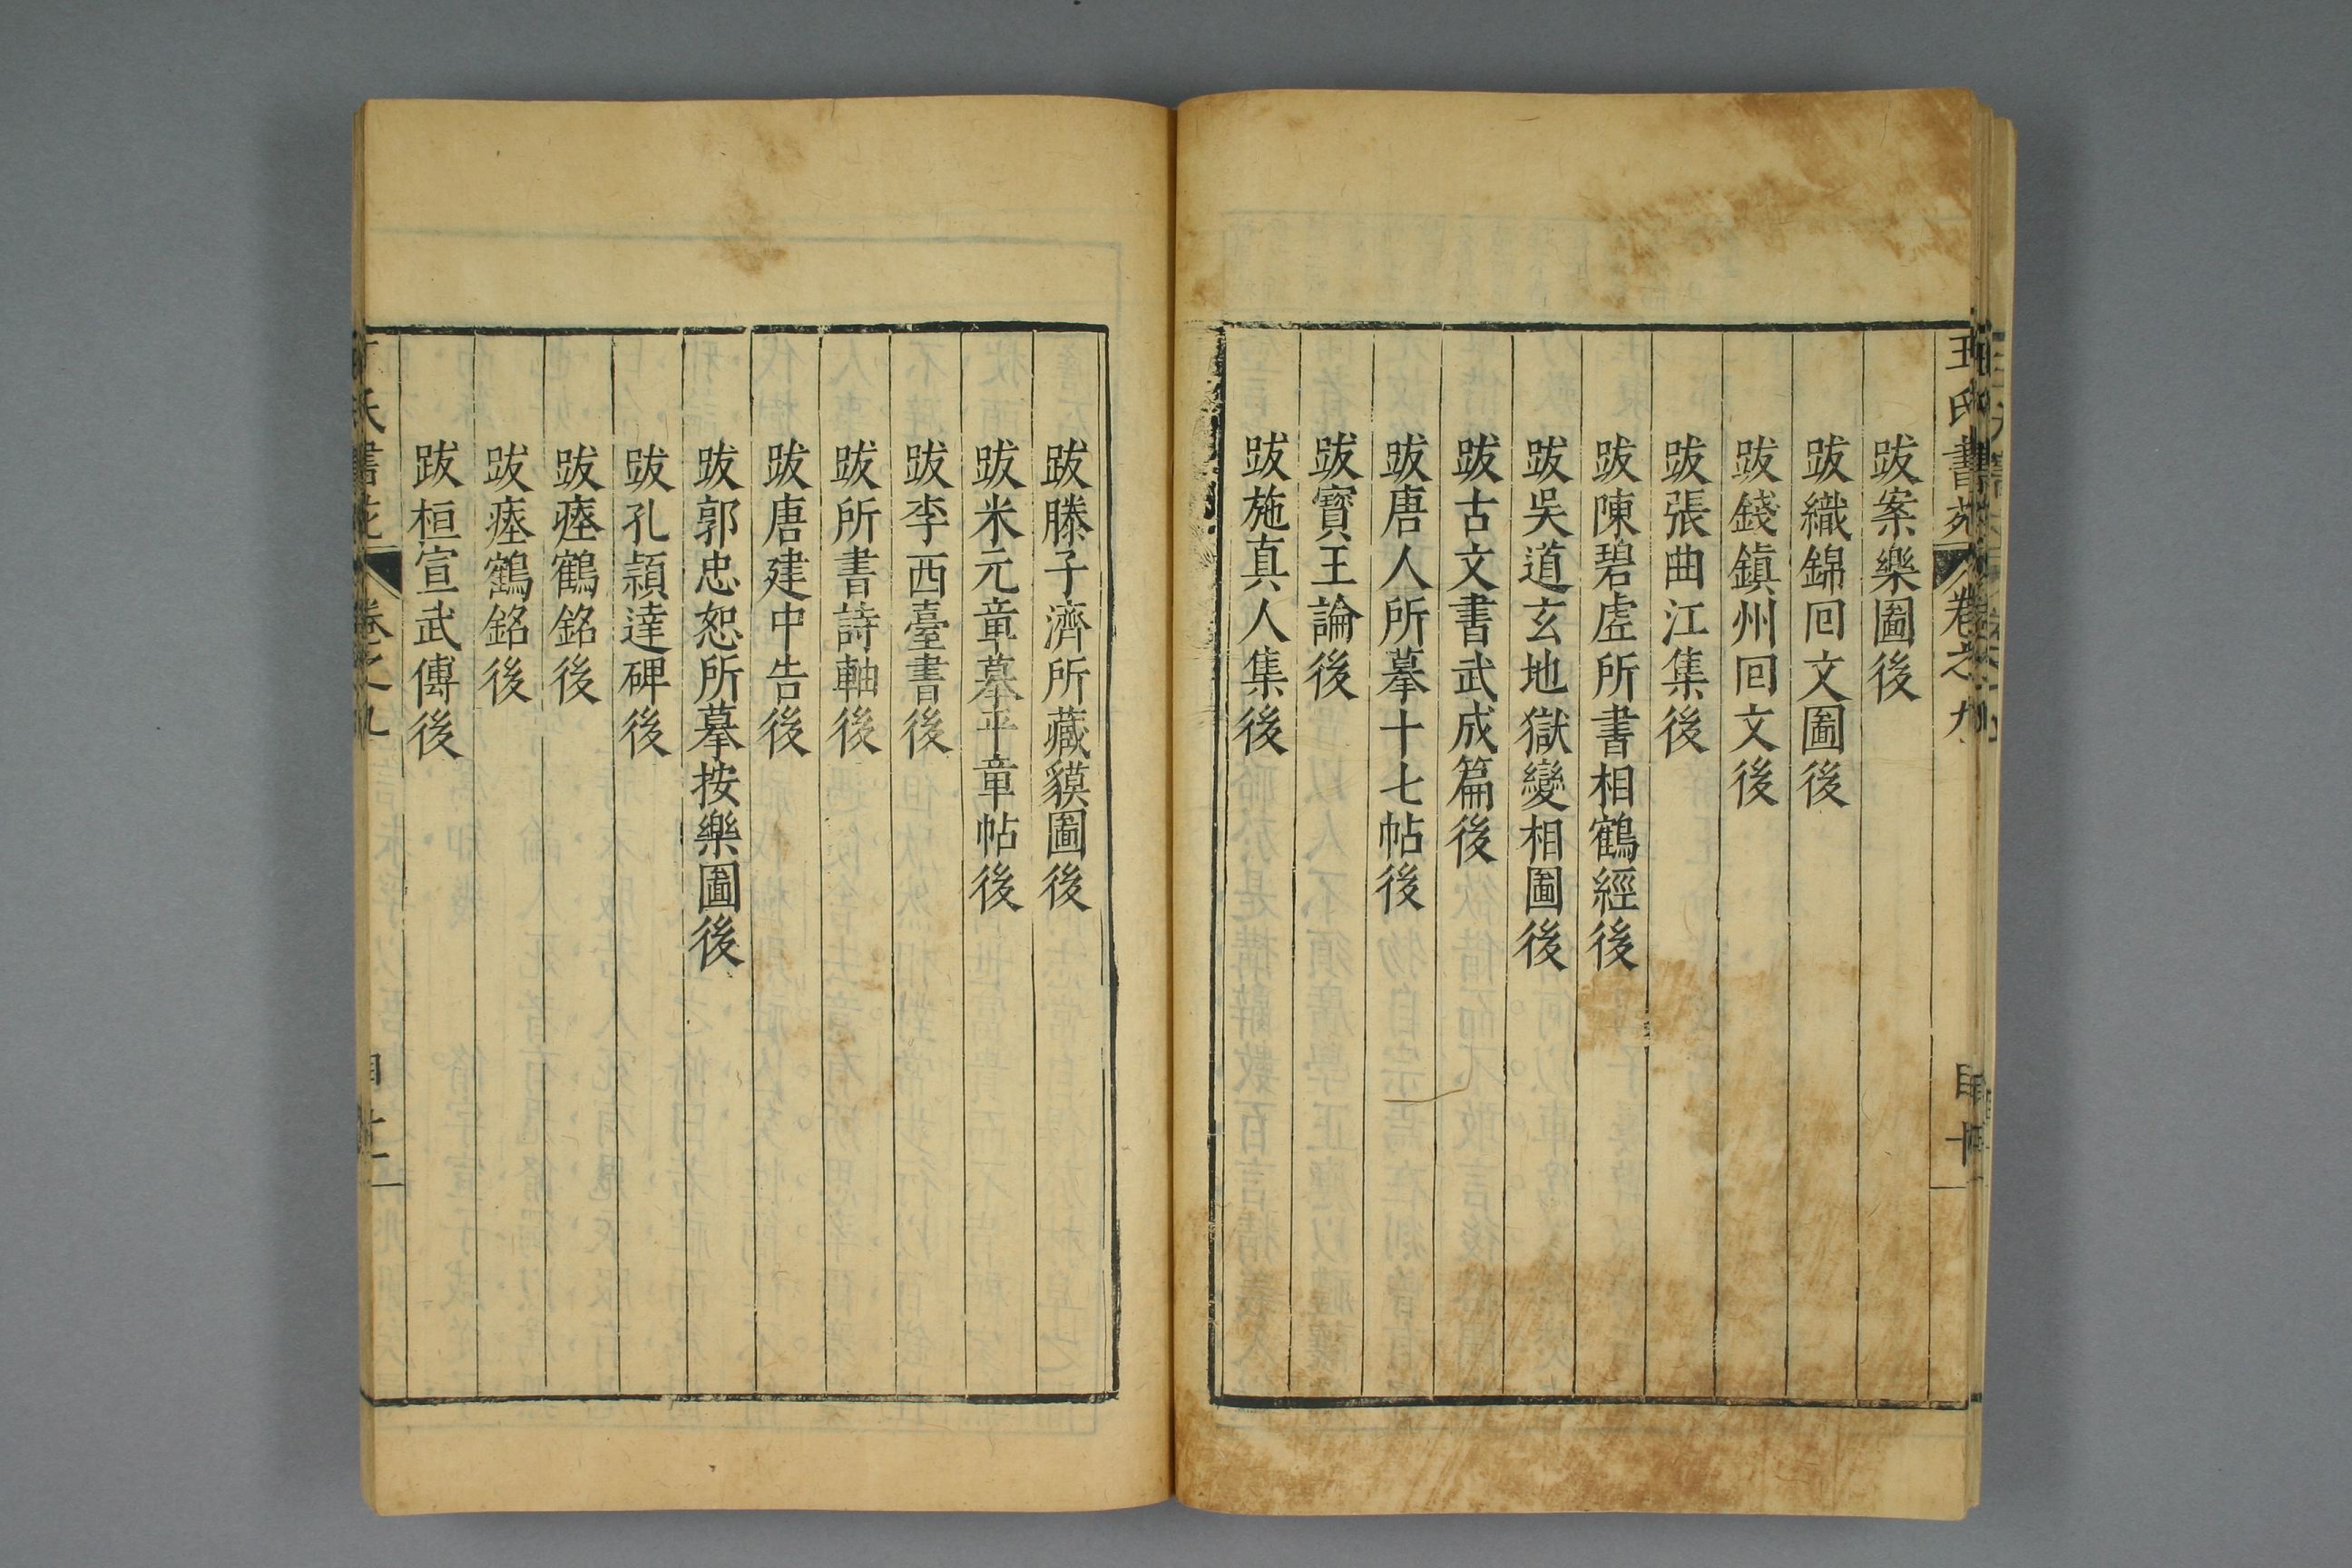 王氏書苑 卷之九
跋案樂圖後
跋織錦回文圖後
跋錢鎮州回文後
跋張曲江集後
跋陳碧虛所書相鶴經後
跋吳道玄地獄變相圖後
跋古文書武成篇後
跋唐人所摹十七帖後
跋寶王論後
跋施真人集後
跋滕子濟所藏貘圖後
跋米元章摹平章帖後
跋李西臺書後
跋所書詩軸後
跋唐建中告後
跋郭忠恕所摹按樂圖後
跋孔頴達碑後
跋瘞鶴銘後
跋瘞鶴銘後
跋桓宣武傳後
氏書苑 卷之九